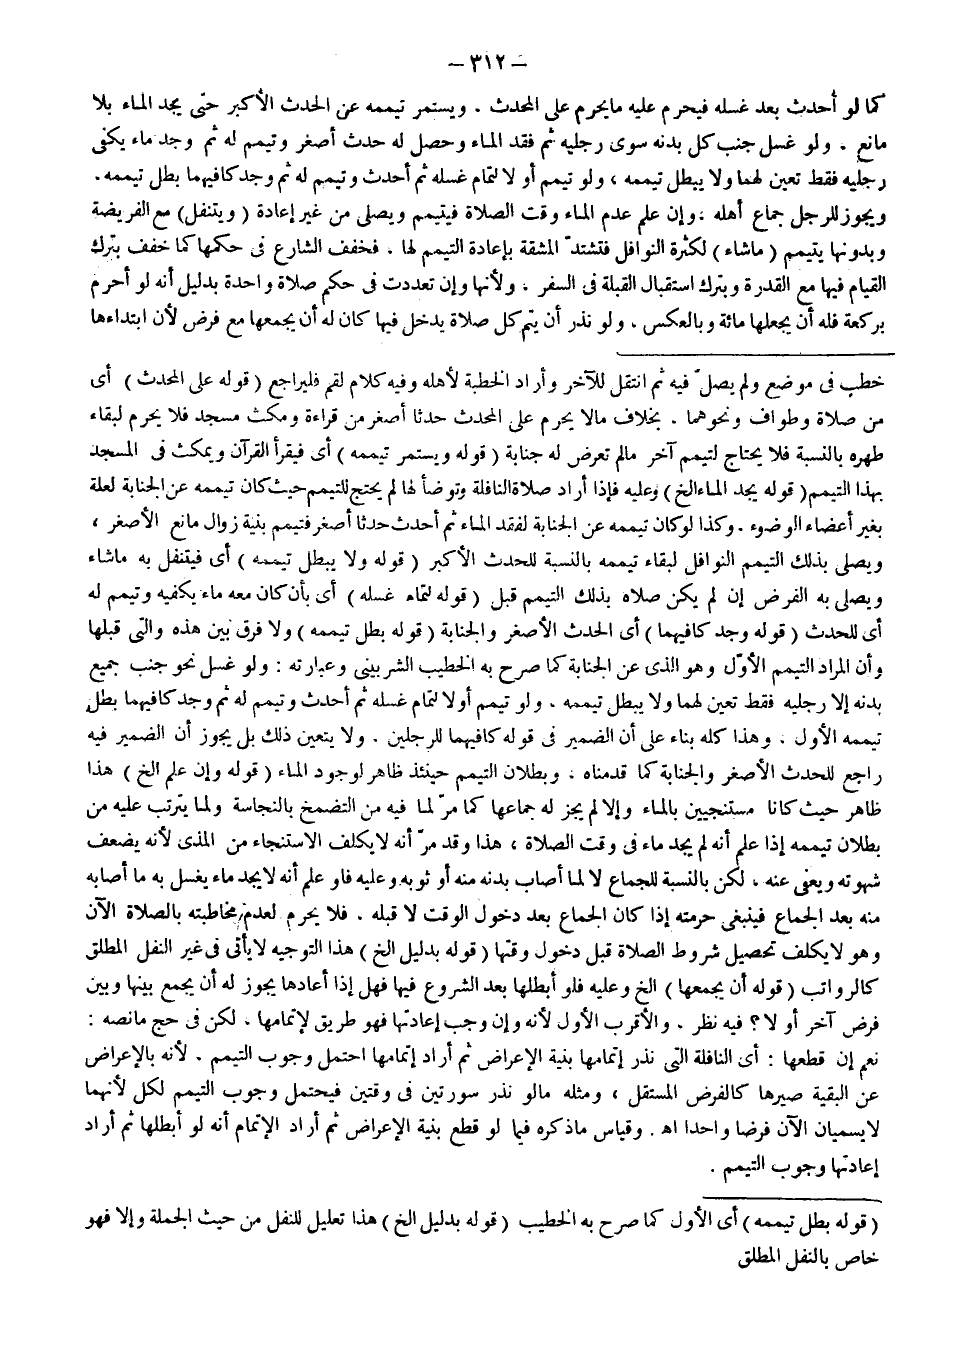 – ٣١٢ –
كما لو أحدث بعد غسله فيحرم عليه مايحرم على المحدث . ويستمر تيممه عن الحدث الأكبر حتى يجد الماء بلا
مانع . ولو غسل جنب كل بدنه سوى رجليه ثم فقد الماء وحصل له حدث أصغر وتيمم له ثم وجد ماء يكفى
رجليه فقط تعين لهما ولا يبطل تيممه ، ولو تيمم أو لا لتمام غسله ثم أحدث وتيمم له ثم وجد كافيهما بطل تيممه .
ويجوز للرجل جماع أهله ، وإن علم عدم الماء وقت الصلاة فيتيمم ويصلى من غير إعادة ( ويتنفل ) مع الفريضة
وبدونها يتيمم ( ماشاء ) لكثرة النوافل فتشتدّ المشقة بإعادة التيمم لها . فخفف الشارع فى حكمها كما خفف بترك
القيام فيها مع القدرة وبترك استقبال القبلة فى السفر ، ولأنها وإن تعددت فى حكم صلاة واحدة بدليل أنه لو أحرم
بركعة فله أن يجعلها مائة وبالعكس . ولو نذر أن يتم كل صلاة يدخل فيها كان له أن يجمعها مع فرض لأن ابتداءها
خطب فى موضع ولم يصلّ فيه ثم انتقل للآخر وأراد الخطبة لأهله وفيه كلام لقم فليراجع ( قوله على المحدث ) أى
من صلاة وطواف ونحوهما . بخلاف مالا يحرم على المحدث حدثا أصغر من قراءة ومكث مسجد فلا يحرم لبقاء
طهره بالنسبة فلا يحتاج لتيمم آخر مالم تعرض له جنابة ( قوله ويستمر تيممه ) أى فيقرأ القرآن ويمكث فى المسجد
بهذا التيمم ( قوله يجد الماء الخ ) وعليه فإذا أراد صلاة النافلة وتوضأ لها لم يحتج للتيمم حيث كان تيممه عن الجنابة لعلة
بغير أعضاء الوضوء . وكذا لو كان تيممه عن الجنابة لفقد الماء ثم أحدث حدثا أصغر فتيمم بنية زوال مانع الأصغر ،
ويصلى بذلك التيمم النوافل لبقاء تيممه بالنسبة للحدث الأكبر ( قوله ولا يبطل تيممه ) أى فيتنفل به ماشاء
ويصلى به الفرض إن لم يكن صلاه بذلك التيمم قبل ( قوله لتمام غسله ) أى بأن كان معه ماء يكفيه وتيمم له
أى للحدث ( قوله وجد كافيهما ) أى الحدث الأصغر والجنابة ( قوله بطل تيممه ) ولا فرق بين هذه والتى قبلها
وأن المراد التيمم الأوّل وهو الذى عن الجنابة كما صرح به الخطيب الشربينى وعبارته : ولو غسل نحو جنب جميع
بدنه إلا رجليه فقط تعين لهما ولا يبطل تيممه . ولو تيمم أولا لتمام غسله ثم أحدث وتيمم له ثم وجد كافيهما بطل
تيممه الأول . وهذا كله بناء على أن الضمير فى قوله كافيهما للرجلين . ولا يتعين ذلك بل يجوز أن الضمير فيه
راجع للحدث الأصغر والجنابة كما قدمناه . وبطلان التيمم حينئذ ظاهر لوجود الماء ( قوله وإن علم الخ ) هذا
ظاهر حيث كانا مستنجيين بالماء وإلا لم يجز له جماعها كما مرّ لما فيه من التضمخ بالنجاسة ولما يترتب عليه من
بطلان تيممه إذا علم أنه لم يجد ماء فى وقت الصلاة ، هذا وقد مرّ أنه لا يكلف الاستنجاء من المذى لأنه يضعف
شهوته ويعفى عنه ، لكن بالنسبة للجماع لا لما أصاب بدنه منه أو ثوبه وعليه فلو علم أنه لايجد ماء يغسل به ما أصابه
منه بعد الجماع فينبغى حرمته إذا كان الجماع بعد دخول الوقت لا قبله . فلا يحرم لعدم مخاطبته بالصلاة الآن
وهو لايكلف تحصيل شروط الصلاة قبل دخول وقتها ( قوله بدليل الخ ) هذا التوجيه لايأتى فى غير النفل المطلق
كالرواتب ( قوله أن يجمعها ) الخ وعليه فلو أبطلها بعد الشروع فيها فهل إذا أعادها يجوز له أن يجمع بينها وبين
فرض آخر أو لا ؟ فيه نظر . والأقرب الأول لأنه وإن وجب إعادتها فهو طريق لإتمامها . لكن فى حج مانصه :
نعم إن قطعها : أى النافلة التى نذر إتمامها بنية الإعراض ثم أراد إتمامها احتمل وجوب التيمم . لأنه بالإعراض
عن البقية صيرها كالفرض المستقل ، ومثله مالو نذر سورتين فى وقتين فيحتمل وجوب التيمم لكل لأنهما
لايسميان الآن فرضا واحدا اه . وقياس ماذكره فيما لو قطع بنية الإعراض ثم أراد الإتمام أنه لو أبطلها ثم أراد
إعادتها وجوب التيمم .
( قوله بطل تيممه ) أى الأول كما صرح به الخطيب ( قوله بدليل الخ ) هذا تعليل للنفل من حيث الجملة وإلا فهو
خاص بالنفل المطلق